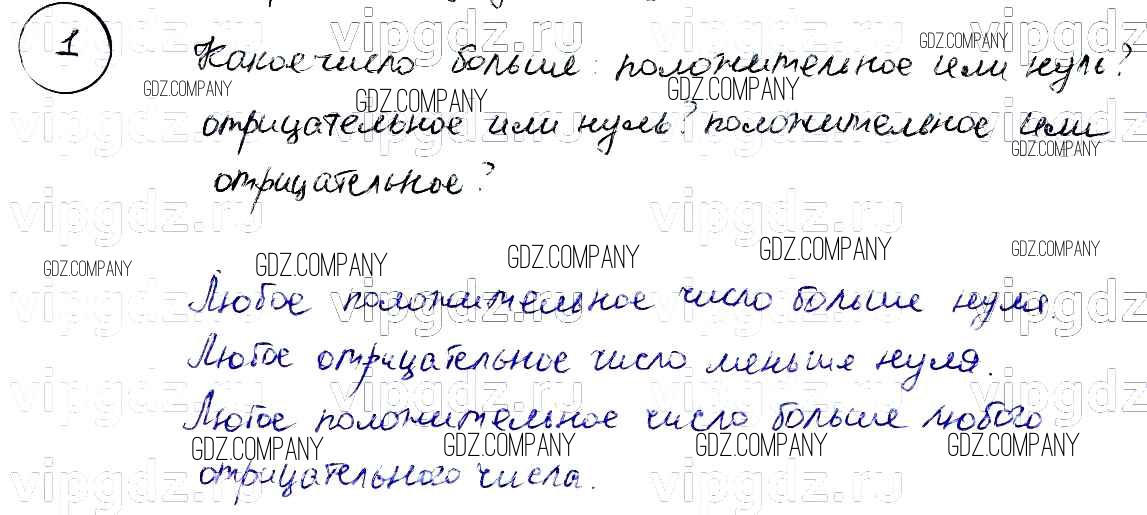 1
Какое число больше: положительное или нуль?
отрицательное или нуль? положительное или
отрицательное?
Любое положительное число больше нуля.
Любое отрицательное число меньше нуля.
Любое положительное число больше любого
отрицательного числа.
vipgdz.ru
GDZ.COMPANY